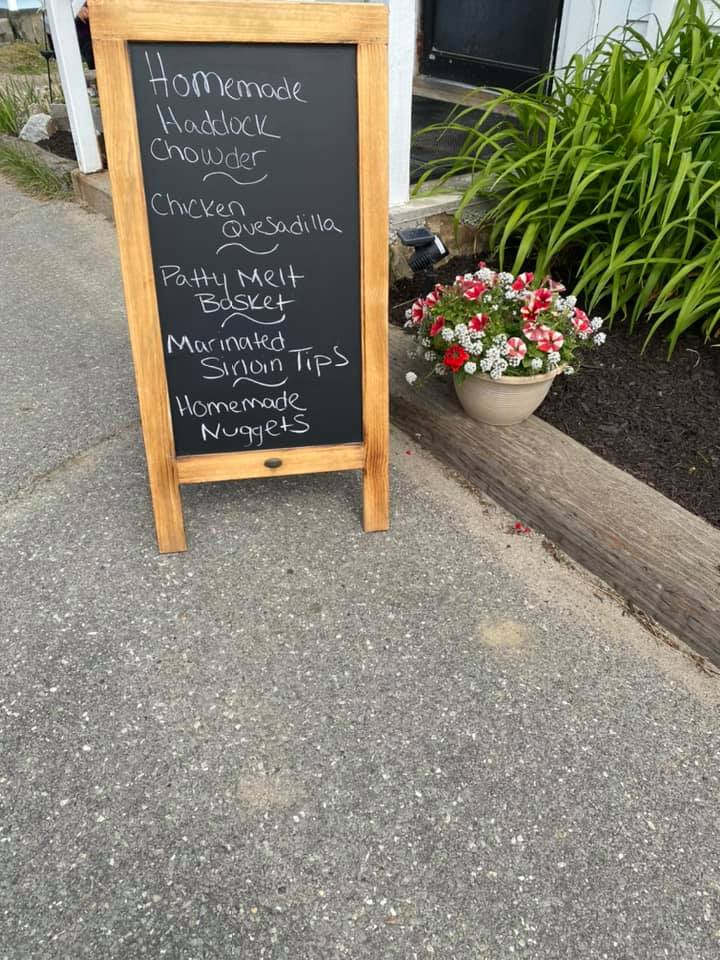 Homemade
Haddock
Chowder
Chicken
Quesadilla
Patty Melt
Basket
Marinated
Sirloin Tips
Homemade
Nuggets